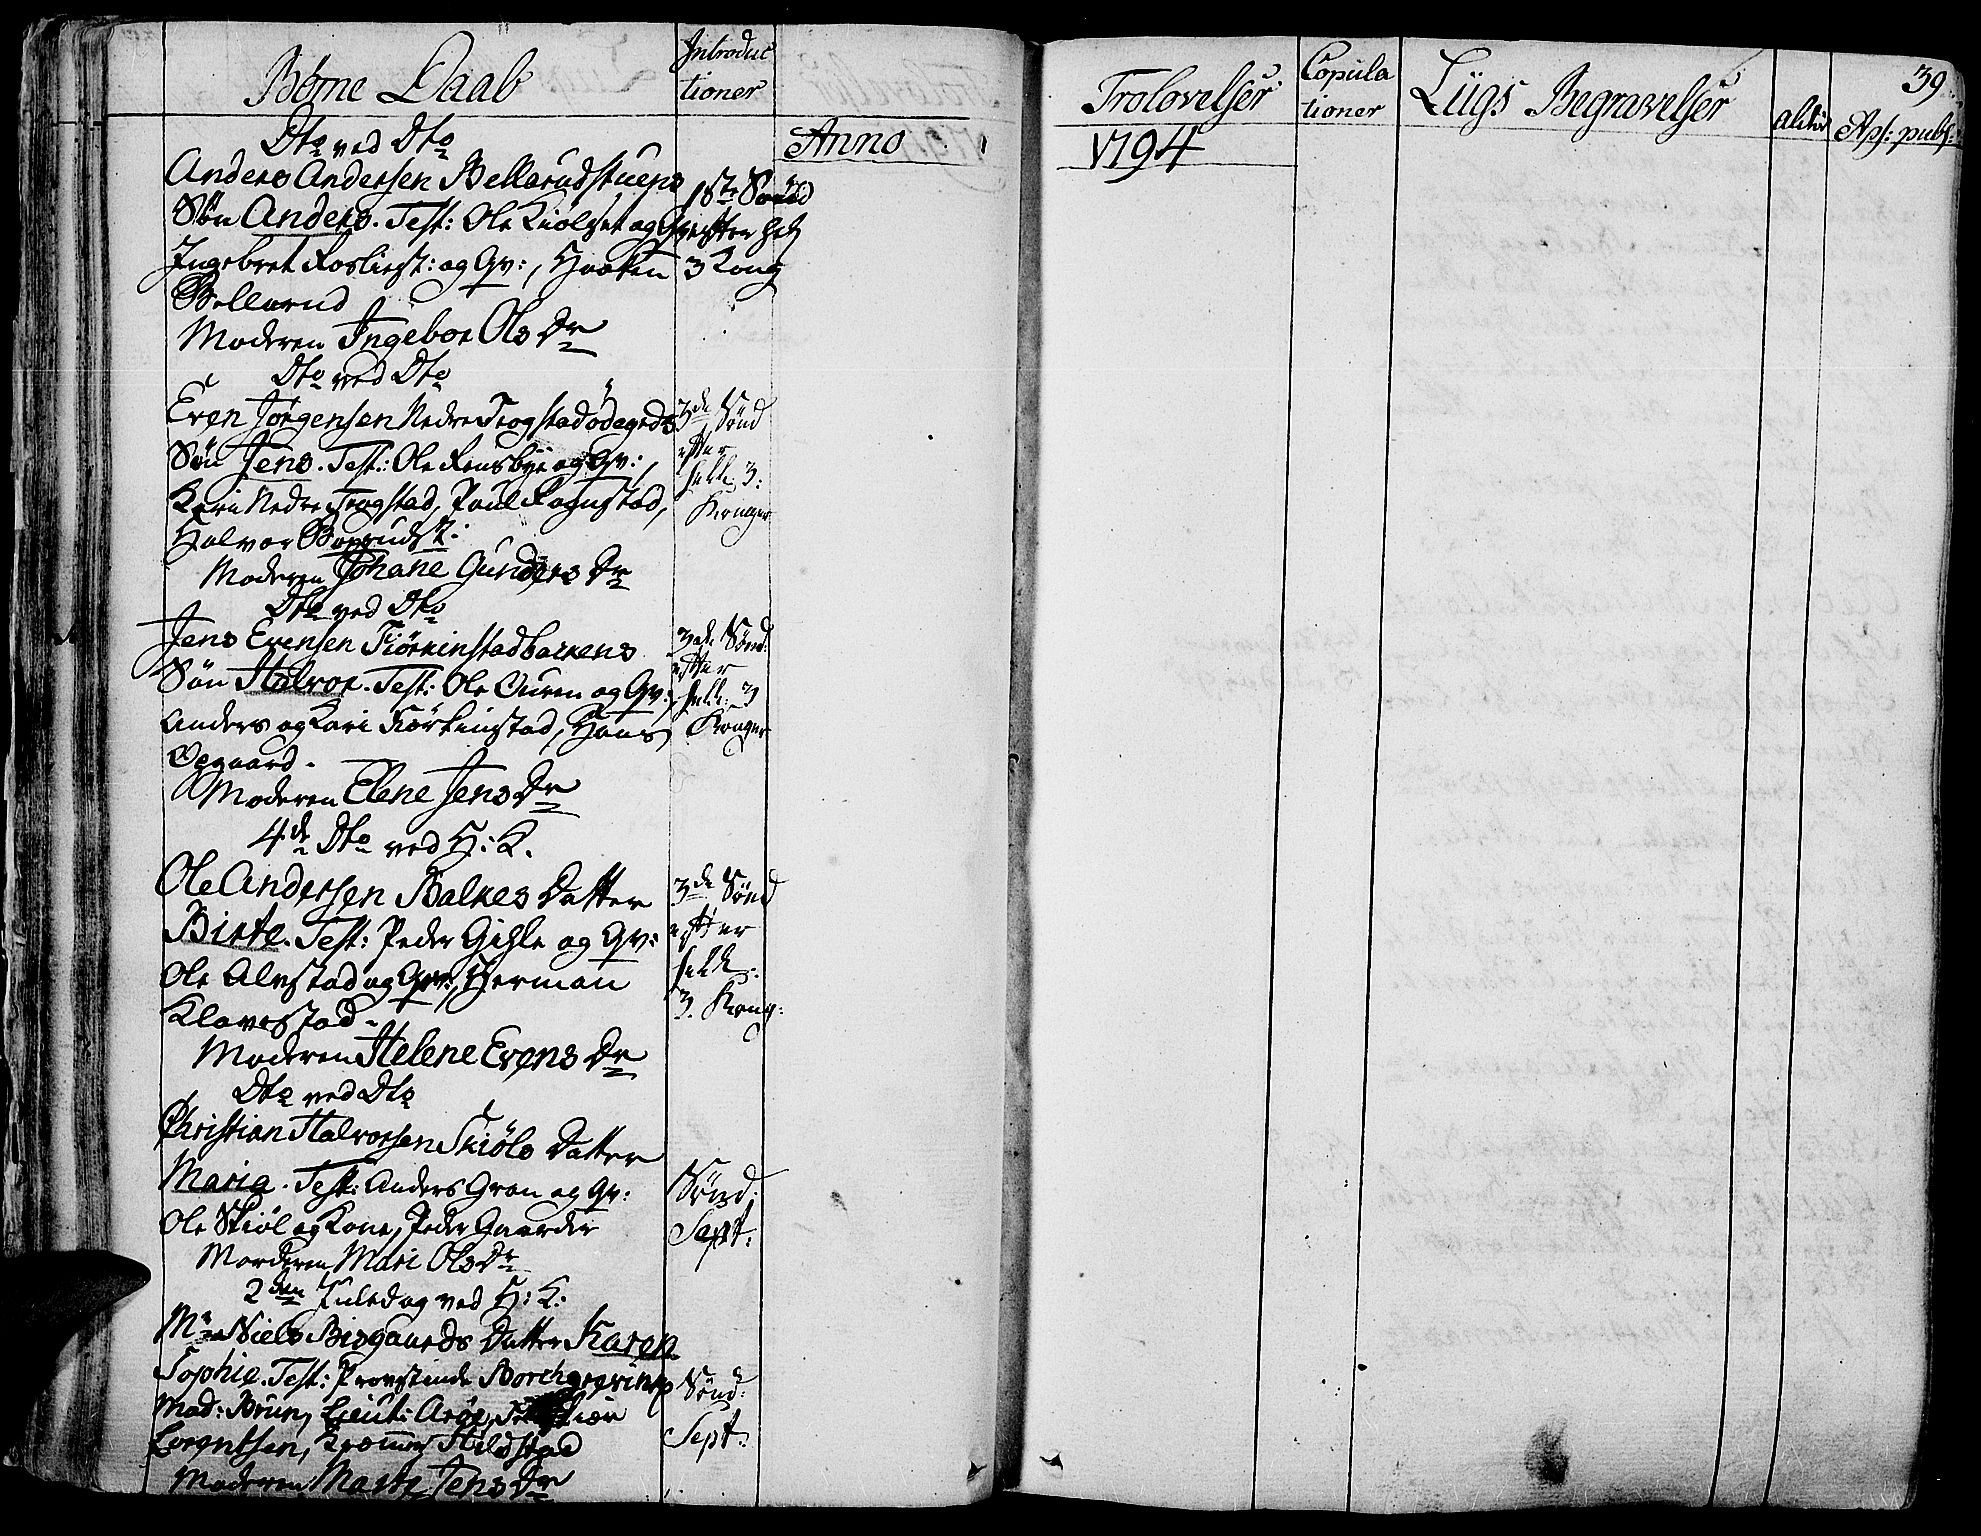 Børne Daab
Introduc
tioner
Anno
Dto ved Dto
Anders Andersen Bellerudstuens
Søn Anders. Test: Ole Kiolset og Gv:
Ingebret Rosliest: og Gv:, Haaken
Bellerud
Moderen Ingebor Ols Dr
1ste Sønd
efter hel
3 Kong
Dto ved Dto
Even Jørgensen Nedre Trogstadødegrds
Søn Jens. Test: Ole Rensbye og Gv:,
Kari Nedre Trogstad, Poul Rognstad,
Halvor
Moderen Johane Gunders Dr
3de Sønd
efter
hell: 3:
Konger
Dto ved Dto
Jens Evensen Fiørkinstadbackens
Søn Halvor. Test: Ole Ouren og Gv:,
Anders og Kari Fiørkinstad, Hans
Opgaard.
Moderen Elene Jens Dr
3de: Sønd:
efter
hell: 3
Konger
4de Dto ved H: K.
Ole Andersen Balkes Datter
Birte. Test: Peder Gihle og Gv:
Ole Alvstad og Gv:, Herman
Klavestad.
Moderen Helene Evens Dr
3de Sønd
efter
hell:
3. Kong:
Dto ved Dto
Christian Halvorsen Skiøls Datter
Maria. Test: Anders Gran og Gv:
Ole Skiøl og Kone, Peder Gaarder
Morderen Mari Ols Dr
Sønd:
Sept:
2den Juledag ved H: K:
Mr Niels Bisgaards Datter Karen
Sophie. Test: Provstinde Borchgrevink
Mad: Brun, Lieut: Arøe,
Lorentsen, Hildstad
Moderen Marte Jens Dr
Sønd:
Sept:
Trolovelser
1794
Copula
tioner
Liigs Begravelser
alder
Aps: pub:
39